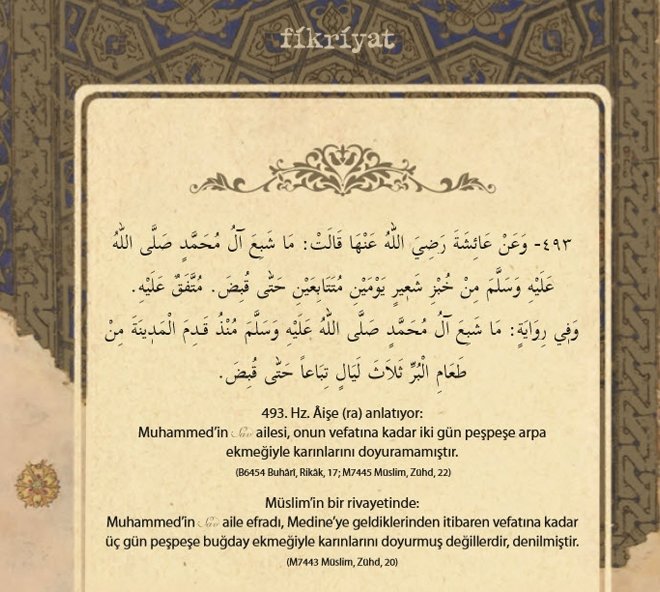 fikriyat
٤٩٣- وَعَنْ عَائِشَةَ رَضِيَ اللّٰهُ عَنْهَا قَالَتْ: مَا شَبِعَ آلُ مُحَمَّدٍ صَلَّى اللّٰهُ
عَلَيْهِ وَسَلَّمَ مِنْ خُبْزِ شَعِيرٍ يَوْمَيْنِ مُتَتَابِعَيْنِ حَتّٰى قُبِضَ. مُتَّفَقٌ عَلَيْهِ.
وَفِي رِوَايَةٍ: مَا شَبِعَ آلُ مُحَمَّدٍ صَلَّى اللّٰهُ عَلَيْهِ وَسَلَّمَ مُنْذُ قَدِمَ الْمَدِينَةَ مِنْ
طَعَامِ الْبُرِّ ثَلَاثَ لَيَالٍ تِبَاعاً حَتّٰى قُبِضَ.
493. Hz. Âişe (ra) anlatıyor:
Muhammed’in Sav ailesi, onun vefatına kadar iki gün peşpeşe arpa
ekmeğiyle karınlarını doyuramamıştır.
(B6454 Buhârî, Rikâk, 17; M7445 Müslim, Zühd, 22)
Müslim’in bir rivayetinde:
Muhammed’in Sav aile efradı, Medine’ye geldiklerinden itibaren vefatına kadar
üç gün peşpeşe buğday ekmeğiyle karınlarını doyurmuş değillerdir, denilmiştir.
(M7443 Müslim, Zühd, 20)